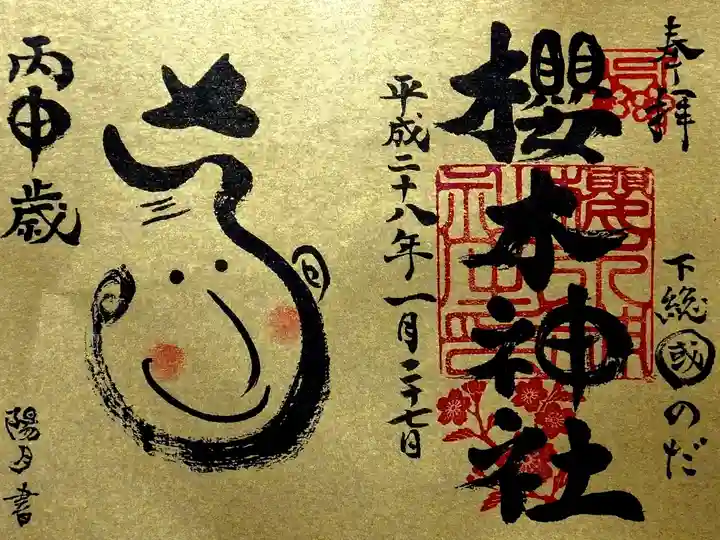 奉拝
下総國のだ
櫻木神社
平成二十八年一月二十七日
丙申歳
陽月書